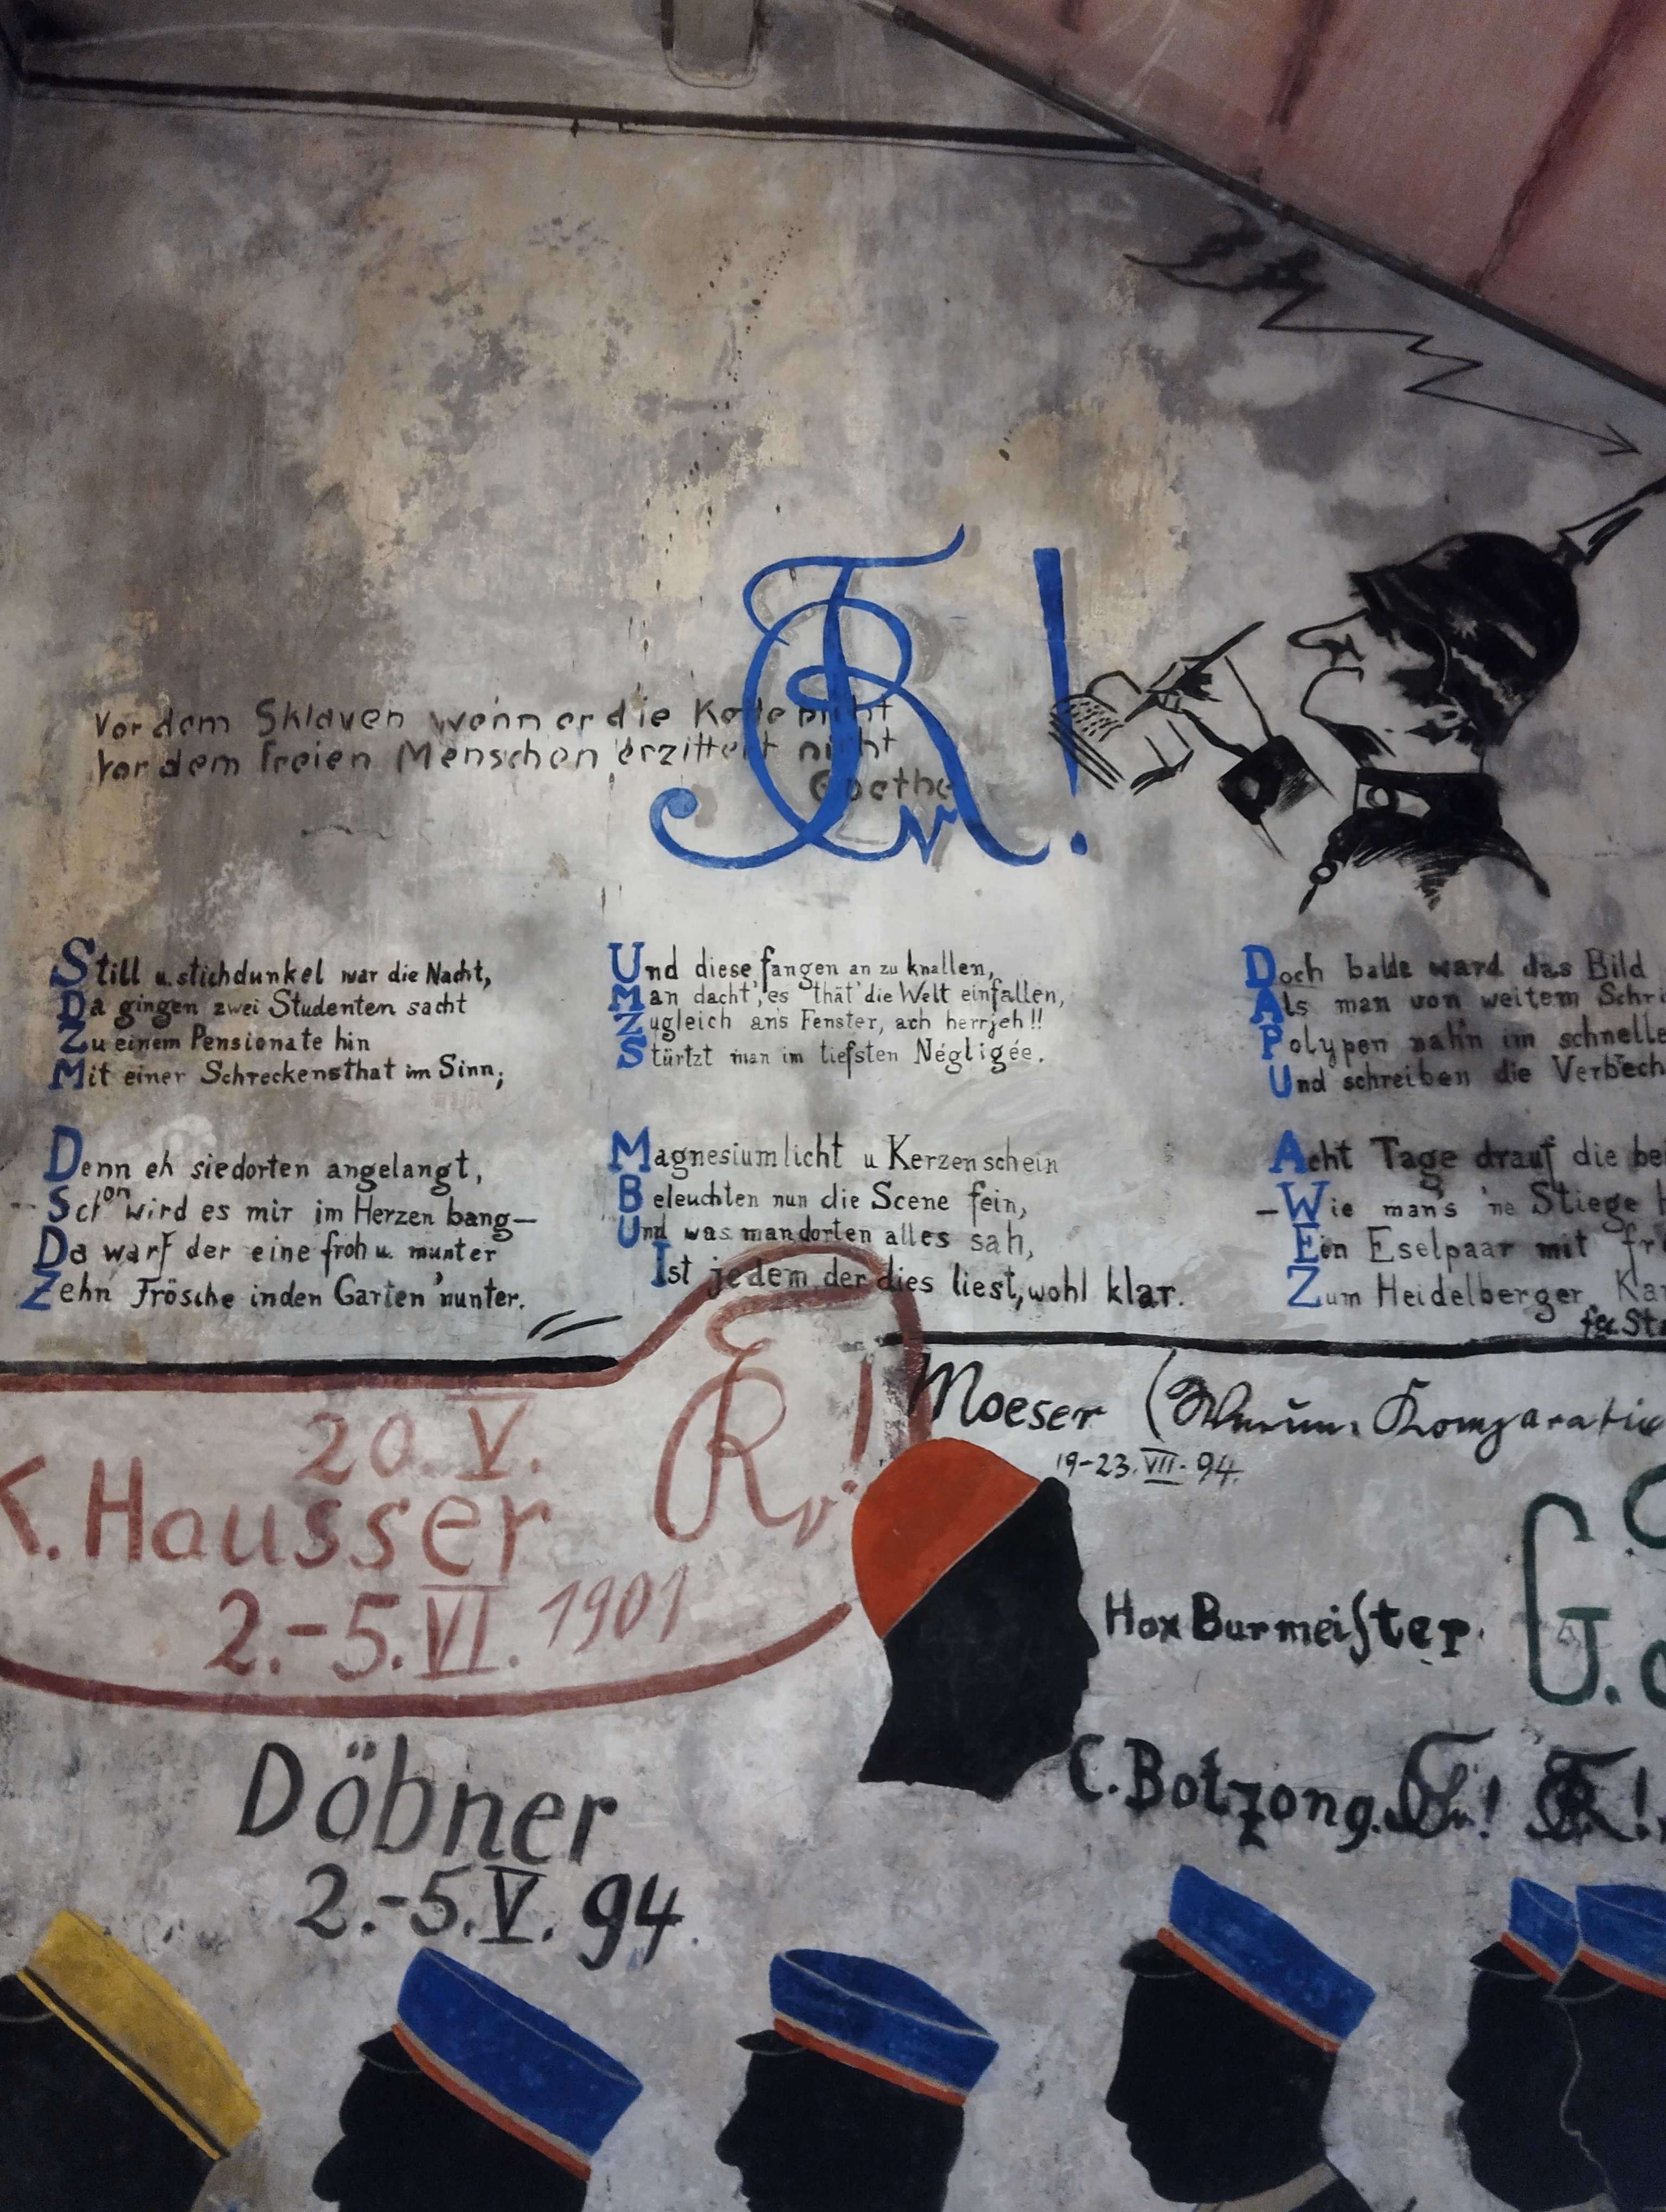 Vor dem Sklaven wenn er die Kette bricht
Vor dem freien Menschen erzittert nicht
Goethe
Still u. stichdunkel war die Nacht,
Da gingen zwei Studenten sacht
Zu einem Pensionate hin
Mit einer Schreckensthat im Sinn;
Denn eh sie dorten angelangt,
Schon wird es mir im Herzen bang—
Da warf der eine froh u. munter
Zehn Frösche in den Garten 'nunter.
Und diese fangen an zu knallen,
Man dacht', es thät' die Welt einfallen,
Zugleich ans Fenster, ach herrjeh!!
Stürtzt man im tiefsten Négligée.
Magnesiumlicht u Kerzenschein
Beleuchten nun die Scene fein,
Und was man dorten alles sah,
Ist jedem, der dies liest, wohl klar.
Doch balde ward das Bild
Als man von weitem Schri
Polypen nah'n im schnelle
Und schreiben die Verbrech
Acht Tage drauf die bei
—Wie man's 'ne Stiege h
Ein Eselpaar mit fr
Zum Heidelberger Kar
20. V.
K. Hausser
2.-5. VI. 1901
Moeser
19-23. VII. 94.
Hox Burmeister.
C. Botzong.
Döbner
2.-5. V. 94.